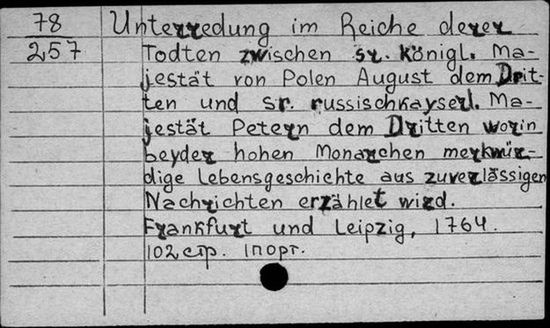 78 Unterredung im Reiche derer
257 Todten zwischen sr. königl. Ma-
jestät von Polen August dem Drit-
ten und sr. russischkayserl. Ma-
jestät Petern dem Dritten worin
beyder hohen Monarchen merkwür-
dige Lebensgeschichte aus zuverlässigen
Nachrichten erzählet wird.
Frankfurt und Leipzig, 1764.
102 стр. 1 порт.